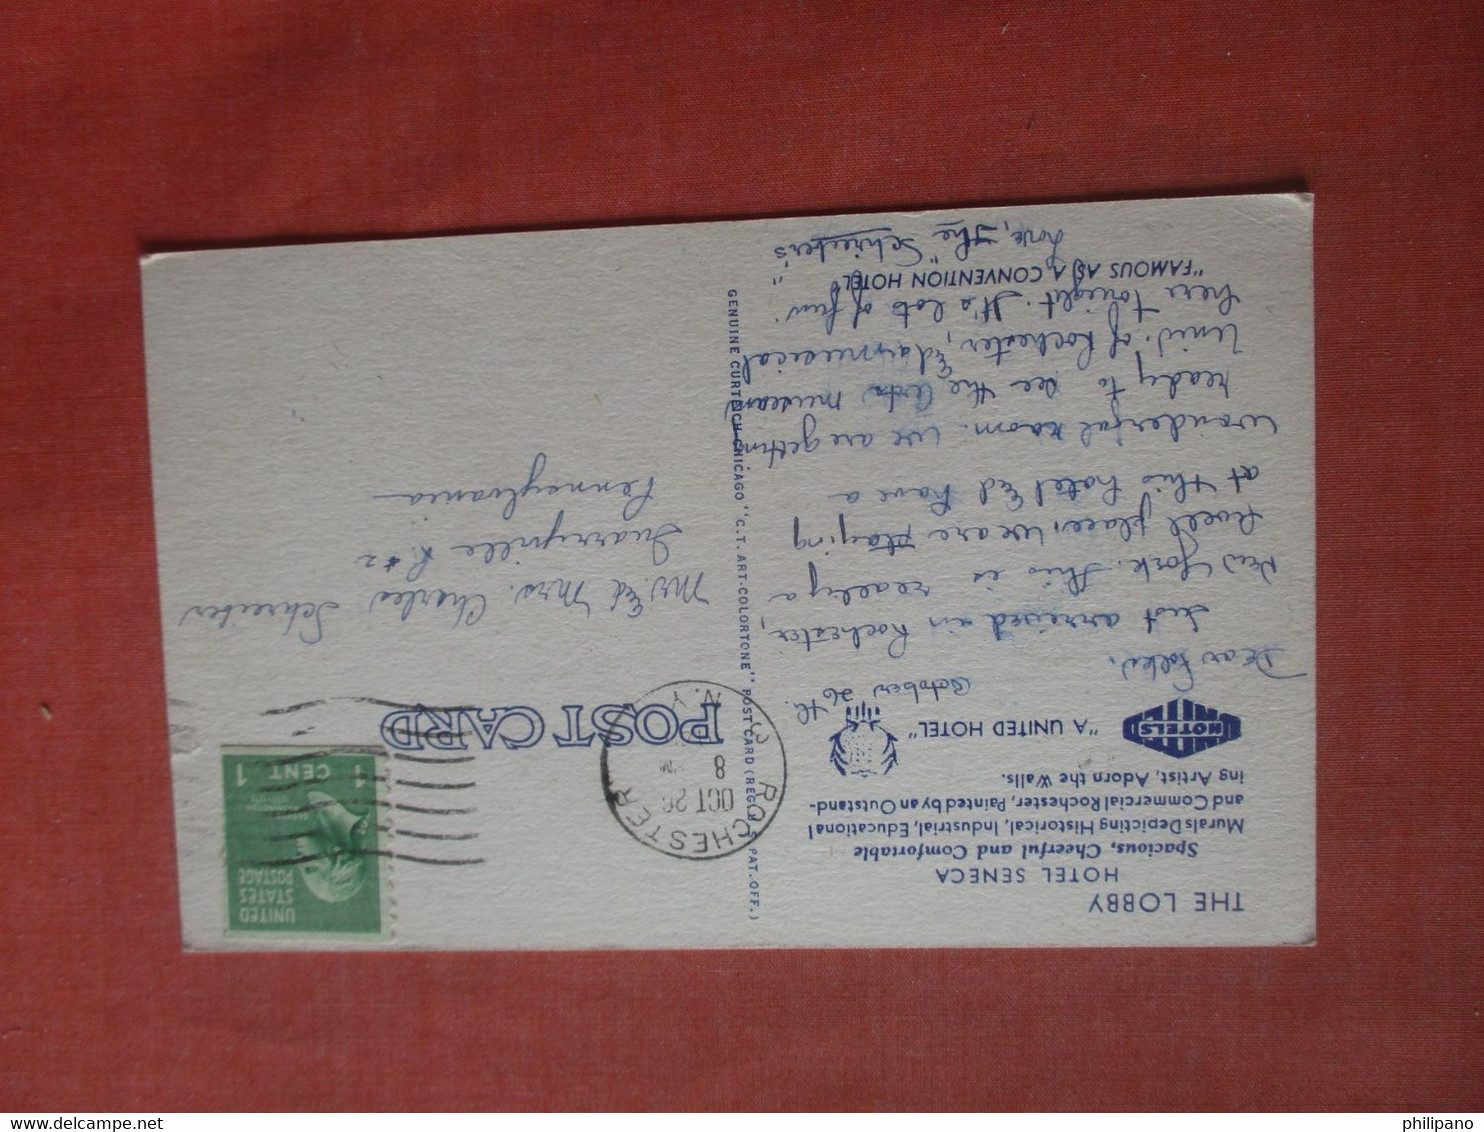 THE LOBBY
HOTEL SENECA
Spacious, Cheerful and Comfortable
Murals Depicting Historical, Industrial, Educational
and Commercial Rochester, Painted by an Outstand-
ing Artist, Adorn the Walls.
HOTELS
"A UNITED HOTEL"
October 26th
Dear Folks,
Just arrived in Rochester,
New York. This is really a
swell place. We are staying
at this hotel & have a
wonderful room. We are getting
ready to see the Arts museum
Univ. of Rochester, &
here tonight. It's lots of fun.
"FAMOUS AS A CONVENTION HOTEL"
Love, The "Schreiber's"
GENUINE CURTEICH-CHICAGO "C.T. ART-COLORTONE" POST CARD (REG. U.S. PAT. OFF.)
POST CARD
ROCHESTER
N.Y.
OCT 26
8
PM
UNITED
STATES
POSTAGE
1 CENT 1
Mr. & Mrs. Charles Schreiber
Quarryville R#2
Pennsylvania
www.delcampe.net
philipano